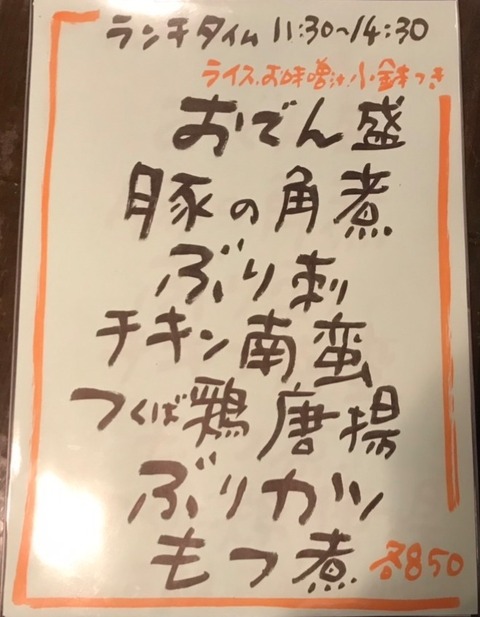 ランチタイム 11:30~14:30
ライス.お味噌汁.小鉢つき
おでん盛
豚の角煮
ぶり刺
チキン南蛮
つくば鶏唐揚
ぶりカツ
もつ煮 各850